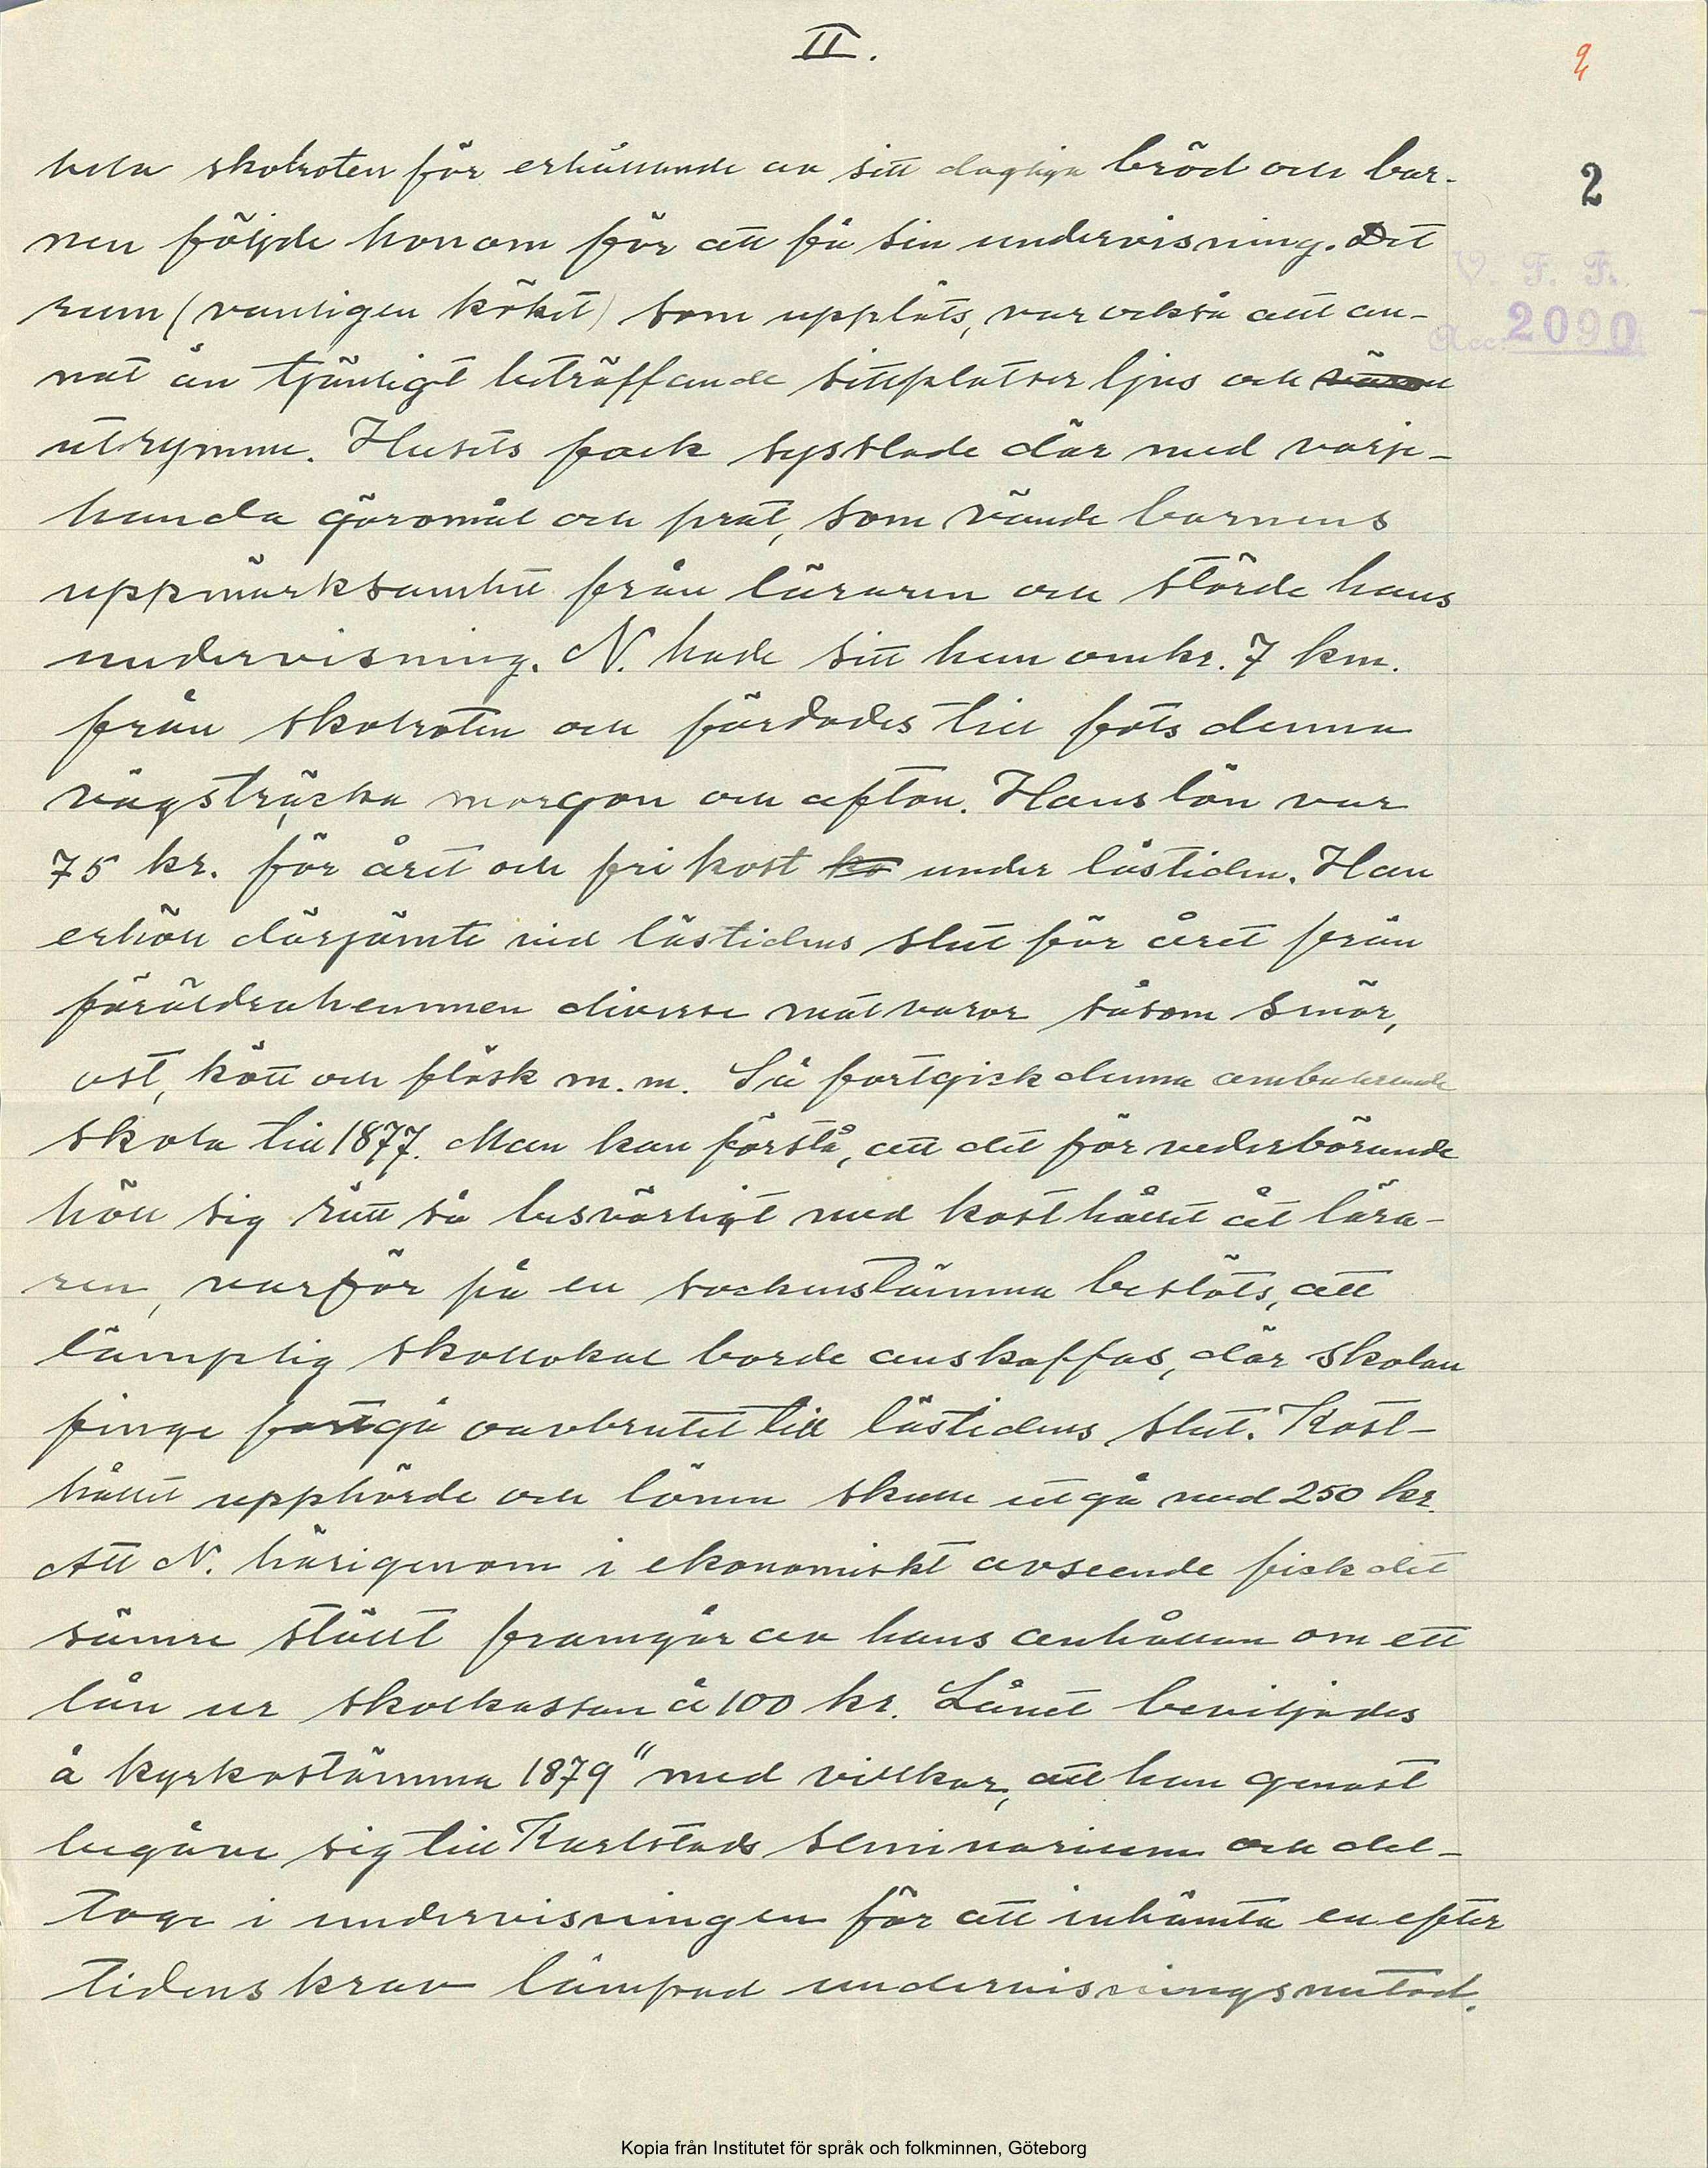 II.
2
hela skolroten för erhållande av sitt dagliga bröd och bar-
nen följde honom för att få sin undervisning. Det
rum (vanligen köket) som uppläts, var också allt an-
V. F. F.
Acc 2090
nat än tjänligt beträffande sittplatser ljus och
utrymme. Husets folk sysslade där med varje-
handa göromål och prat, som vände barnens
uppmärksamhet från läraren och störde hans
undervisning. N. hade sitt hem omkr. 7 km.
från skolroten och färdades till fots denna
vägsträcka morgon och afton. Hans lön var
75 kr. för året och fri kost ko under lästiden. Han
erhöll därjämte vid lästidens slut för året från
föräldrahemmen diverse matvaror såsom smör,
ost, kött och fläsk m.m. Så fortgick denna ambulerande
skola till 1877. Man kan förstå, att det för vederbörande
höll sig rätt så besvärligt med kosthållet åt lära-
ren, varför på en sockenstämma beslöts, att
lämplig skollokal borde anskaffas, där skolan
finge fortgå oavbrutet till lästidens slut. Kost-
hållet upphörde och lönen skulle utgå med 250 kr.
Att N. härigenom i ekonomiskt avseende fick det
sämre ställt framgår av hans anhållan om ett
lån ur skolkassan å 100 kr. Lånet beviljades
å kyrkostämma 1879 "med villkor, att han genast
begåve sig till Karlstads seminarium och del-
toge i undervisningen för att inhämta en efter
tidens krav lämpad undervisningsmetod.
Kopia från Institutet för språk och folkminnen, Göteborg